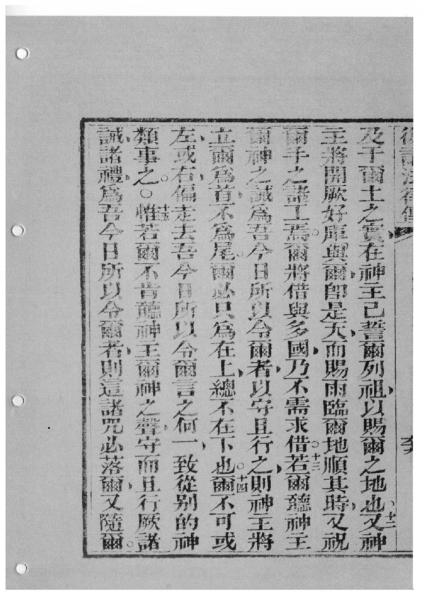 及于爾土之實在神主己誓爾列祖以賜爾之地也。十二又神
主將開厥好庫與爾卽是天而賜雨臨爾地順其時又祝
爾手之諸工焉爾將借與多國乃不需求借。十三若爾聽神主
爾神之誡爲吾今日所以令爾者以守且行之則神主將
立爾爲首不爲尾爾必只爲在上總不在下也。十四爾不可或
左或右偏走去吾今日所以令爾言之何一致從别的神
類事之。十五惟若爾不肯聽神主爾神之聲守而且行厥諸
誡諸禮爲吾今日所以令爾者則這諸咒必落爾又隨爾。